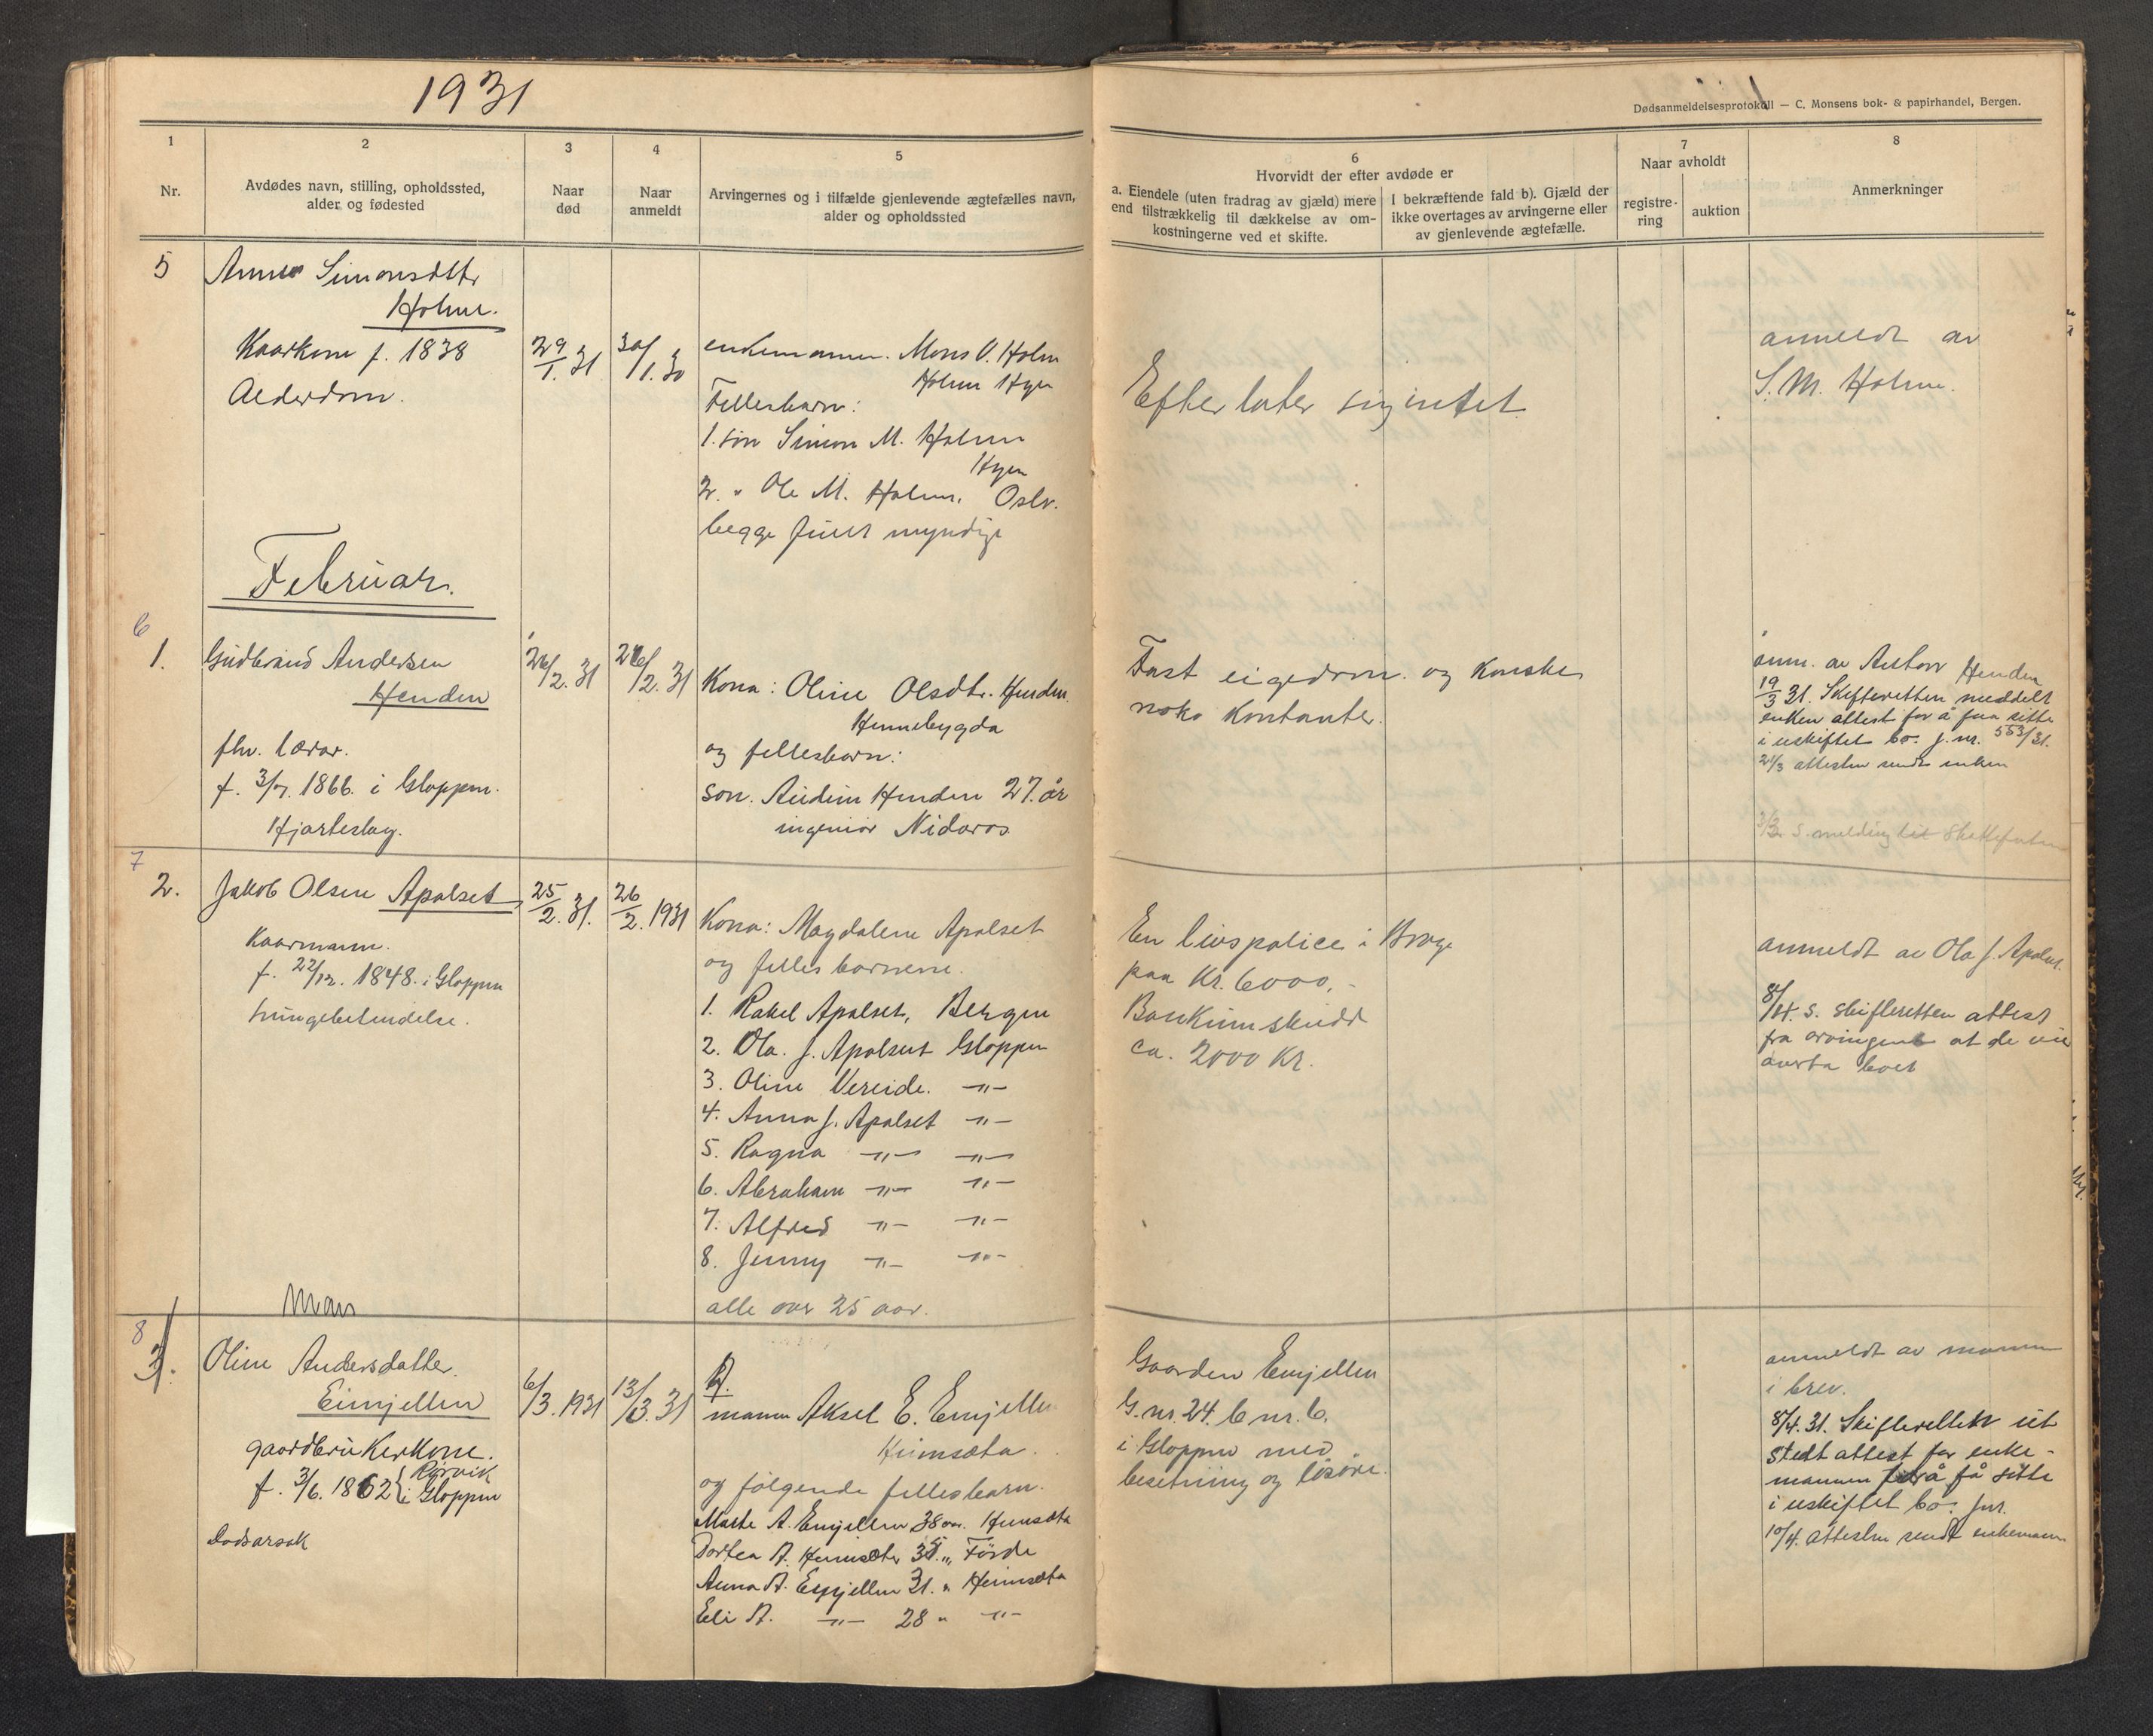 1931
Dødsanmeldelsesprotokoll — C. Monsens bok- & papirhandel, Bergen.
1
Nr.
2
Avdødes navn, stilling, opholdssted,
alder og fødested
3
Naar
død
4
Naar
anmeldt
5
Arvingernes og i tilfælde gjenlevende ægtefælles navn,
alder og opholdssted
6
Hvorvidt der efter avdøde er
a. Eiendele (uten fradrag av gjæld) mere
end tilstrækkelig til dækkelse av om-
kostningerne ved et skifte.
I bekræftende fald b). Gjæld der
ikke overtages av arvingerne eller
av gjenlevende ægtefælle.
7
Naar avholdt
registre-
ring
auktion
8
Anmerkninger
5
Anna Simonsdtr
Holme.
Kaarkone f. 1838
Alderdom.
29/1. 31
30/1. 30
enkemannen. Mons O. Holm
Holme Hyen
Fellesbarn:
1. søn Simon M. Holme
Hyen
2. " Ole M. Holme, Oslo.
begge fullt myndige
Efterlater sig intet
anmeldt av
S. M. Holme.
Februar.
6
1.
Gudbrand Andersen
Henden
fhv. lærar.
f. 3/7. 1866. i Gloppen.
Hjarteslag.
26/2. 31
26/2. 31
Kona: Oline Olsdtr. Henden
Hennebygda
og fellesbarn:
son. Audun Henden 27. år
ingeniør Nidaros
Fast eigedom. og kanske
noko kontanter.
anm. av Anton Henden
19/3 31. Skifteretten meddelt
enken attest for å faa sitte
i uskiftet bo. j. nr. 553/31.
21/3 attesten sendt enken
s. melding til Skattefuten
7
2.
Jakob Olsen Apalset
Kaarmann.
f. 22/12. 1848. i Gloppen
Lungebetendelse.
25/2. 31.
26/2. 1931
Kona: Magdalene Apalset
og felles barnene.
1. Rakel Apalset, Bergen
2. Ola. J. Apalset Gloppen
3. Oline Vereide. -"-
4. Anna J. Apalset -"-
5. Ragna -"- -"-
6. Abraham -"- -"-
7. Alfred -"- -"-
8. Jenny -"- -"-
alle over 25 aar.
En livspolice i Brage
paa Kr. 6000,-
Bankinnskudd
ca. 2000 Kr.
anmeldt av Ola J. Apalset.
8/4. s. skifteretten attest
fra arvingene at de vil
overta boet
Mars
8
3.
Oline Andersdatter.
Eimjellen
gaardbrukerkone.
f. 3/6. 1862 { Rørvik
i Gloppen
Dødsårsak
6/3. 1931
13/3. 31
mannen Aksel E. Eimjellen
Heimseta.
og følgende fellesbarn.
Marte A. Eimjellen 38 aar. Heimseta
Dortea A. Heimseter 35 " Førde
Anna A. Eimjellen 31. " Heimseta
Eli A. -"- 28 " -"-
Gaarden Eimjellen
G. nr. 24. b nr. 6.
i Gloppen med
besetning og løsøre.
anmeldt av mannen
i brev.
8/4. 31. Skifteretten ut
stedt attest for enke-
mannen for å få sitte
i uskiftet bo. Jnr.
10/4. attesten sendt enkemann